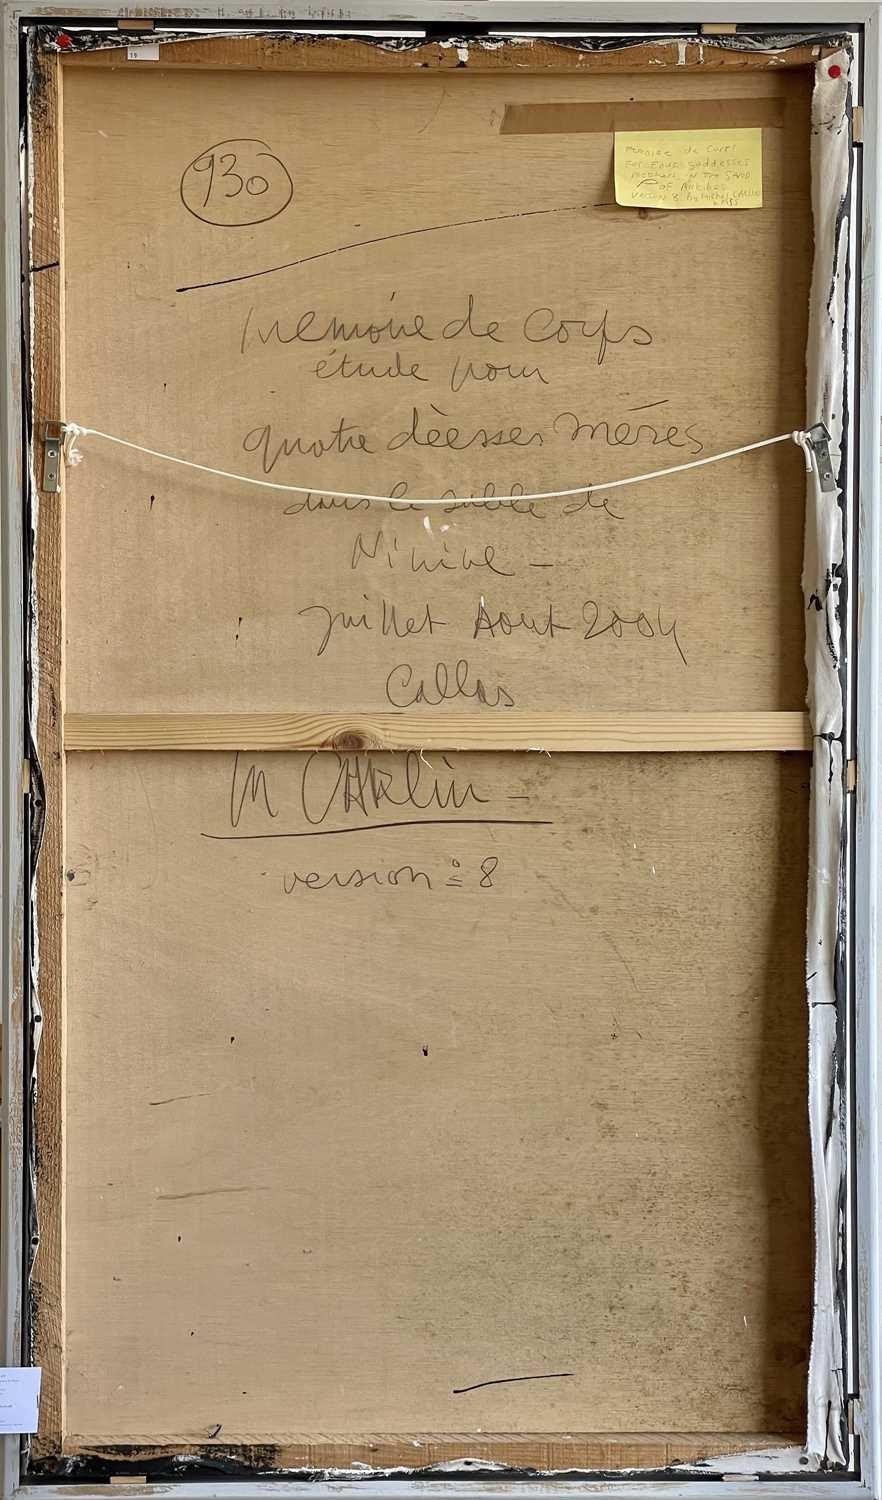 930
Mémoire de Corps
étude pour
quatre déesses mères
dans le sable de
Ninive -
Juillet Aout 2004
Callas
M CARlin -
version n° 8
19
Memoire de Corps
For Four goddesses
mothers in the sand
OF
version 8 By Michel